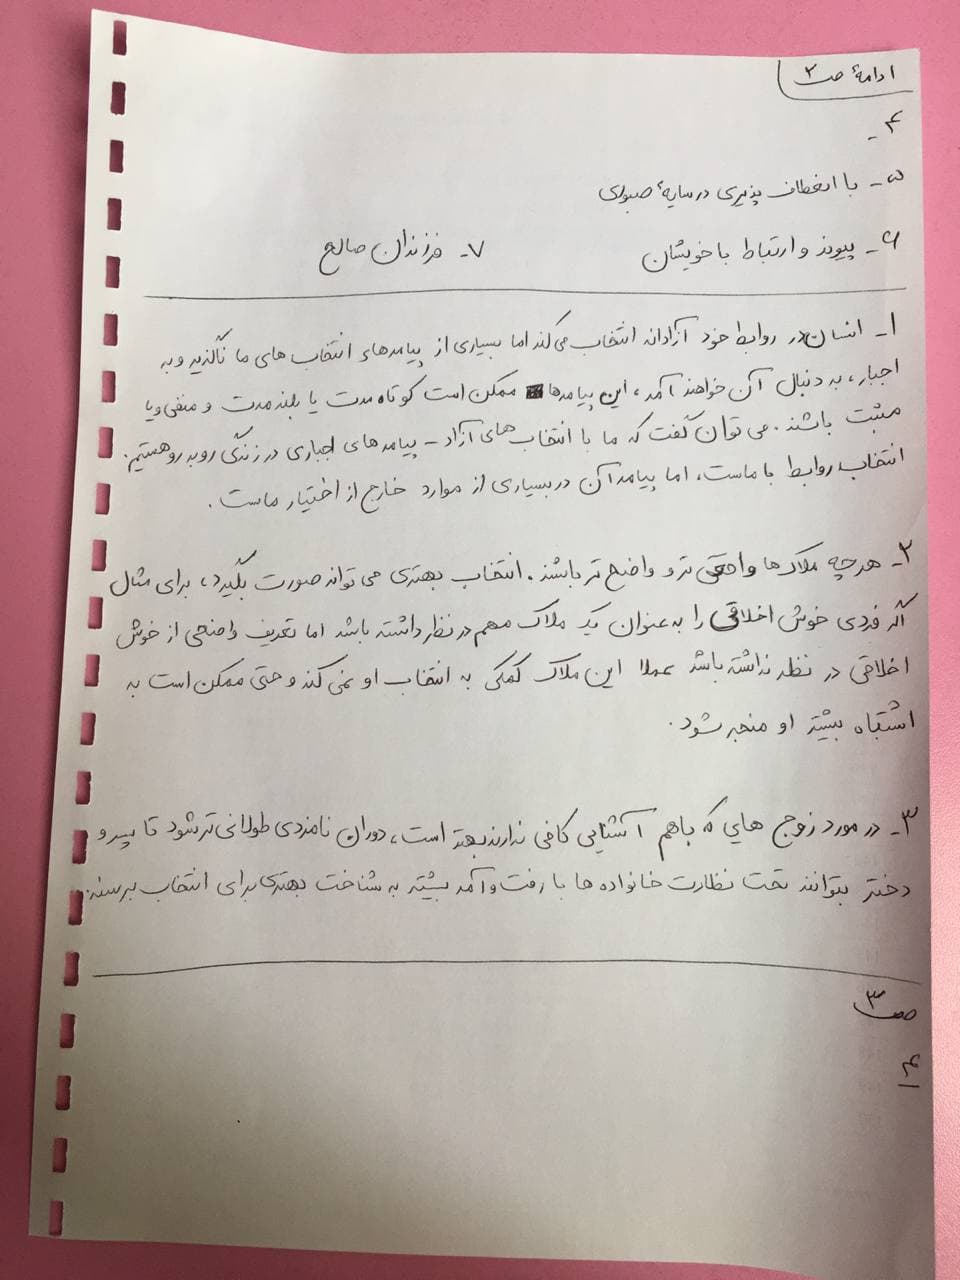 ادامهٔ ص ۲
۴-
۵- با انعطاف پذیری در سایهٔ صبوری
۶- پیوند و ارتباط با خویشان ۷- فرزندان صالح
۱- انسان در روابط خود آزادانه انتخاب می کند اما بسیاری از پیامدهای انتخاب های ما ناگزیر و به
اجبار، به دنبال آن خواهند آمد، این پیامدها ممکن است کوتاه مدت یا بلند مدت و منفی و یا
مثبت باشند. می توان گفت که ما با انتخاب های آزاد - پیامدهای اجباری در زندگی روبه رو هستیم.
انتخاب روابط با ماست، اما پیامد آن در بسیاری از موارد خارج از اختیار ماست.
۲- هرچه ملاک ها واقعی تر و واضح تر باشند. انتخاب بهتری می تواند صورت بگیرد، برای مثال
اگر فردی خوش اخلاقی را به عنوان یک ملاک مهم در نظر داشته باشد اما تعریف واضحی از خوش
اخلاقی در نظر نداشته باشد عملا این ملاک کمکی به انتخاب او نمی کند و حتی ممکن است به
اشتباه بیشتر او منجر شود.
۳- در مورد زوج هایی که باهم آشنایی کافی ندارند بهتر است، دوران نامزدی طولانی تر شود تا پسر و
دختر بتوانند تحت نظارت خانواده ها با رفت و آمد بیشتر به شناخت بهتری برای انتخاب برسند.
ص ۳
۴-